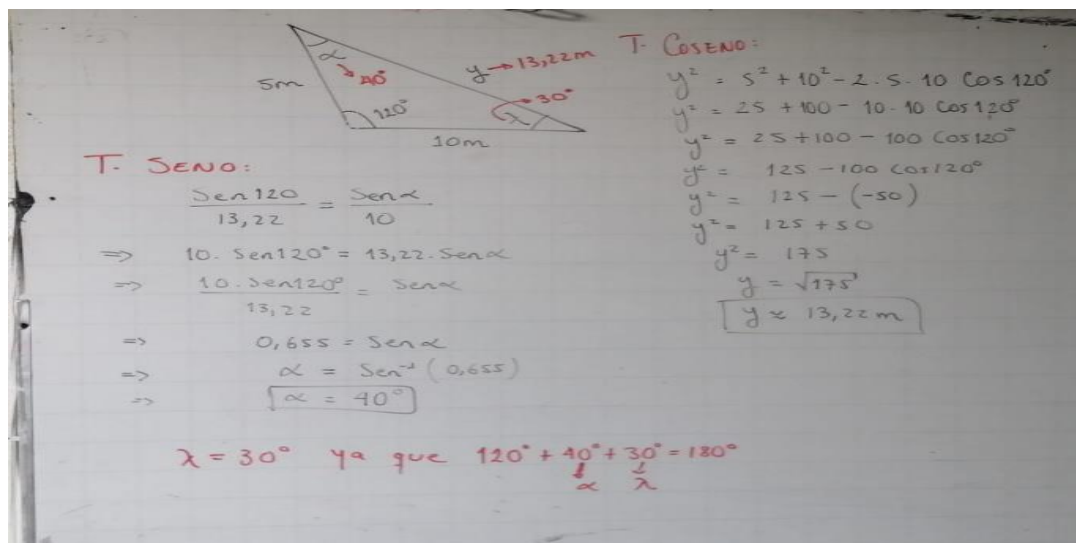 α
40°
5m
120°
y → 13,22m
30°
λ
10m
T. SENO:
Sen120 / 13,22 = Senα / 10
=> 10. Sen120° = 13,22. Senα
=> 10. Sen120° / 13,22 = Senα
=> 0,655 = Senα
=> α = Sen⁻¹ (0,655)
=> α = 40°
λ = 30° ya que 120° + 40° + 30° = 180°
α λ
T. COSENO:
y² = 5² + 10² - 2. 5. 10 Cos 120°
y² = 25 + 100 - 10. 10 Cos 120°
y² = 25 + 100 - 100 Cos 120°
y² = 125 - 100 Cos 120°
y² = 125 - (-50)
y² = 125 + 50
y² = 175
y = √175
y ≈ 13,22 m